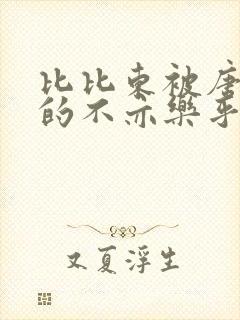 比比东被唐
的不亦乐乎
又夏浮生